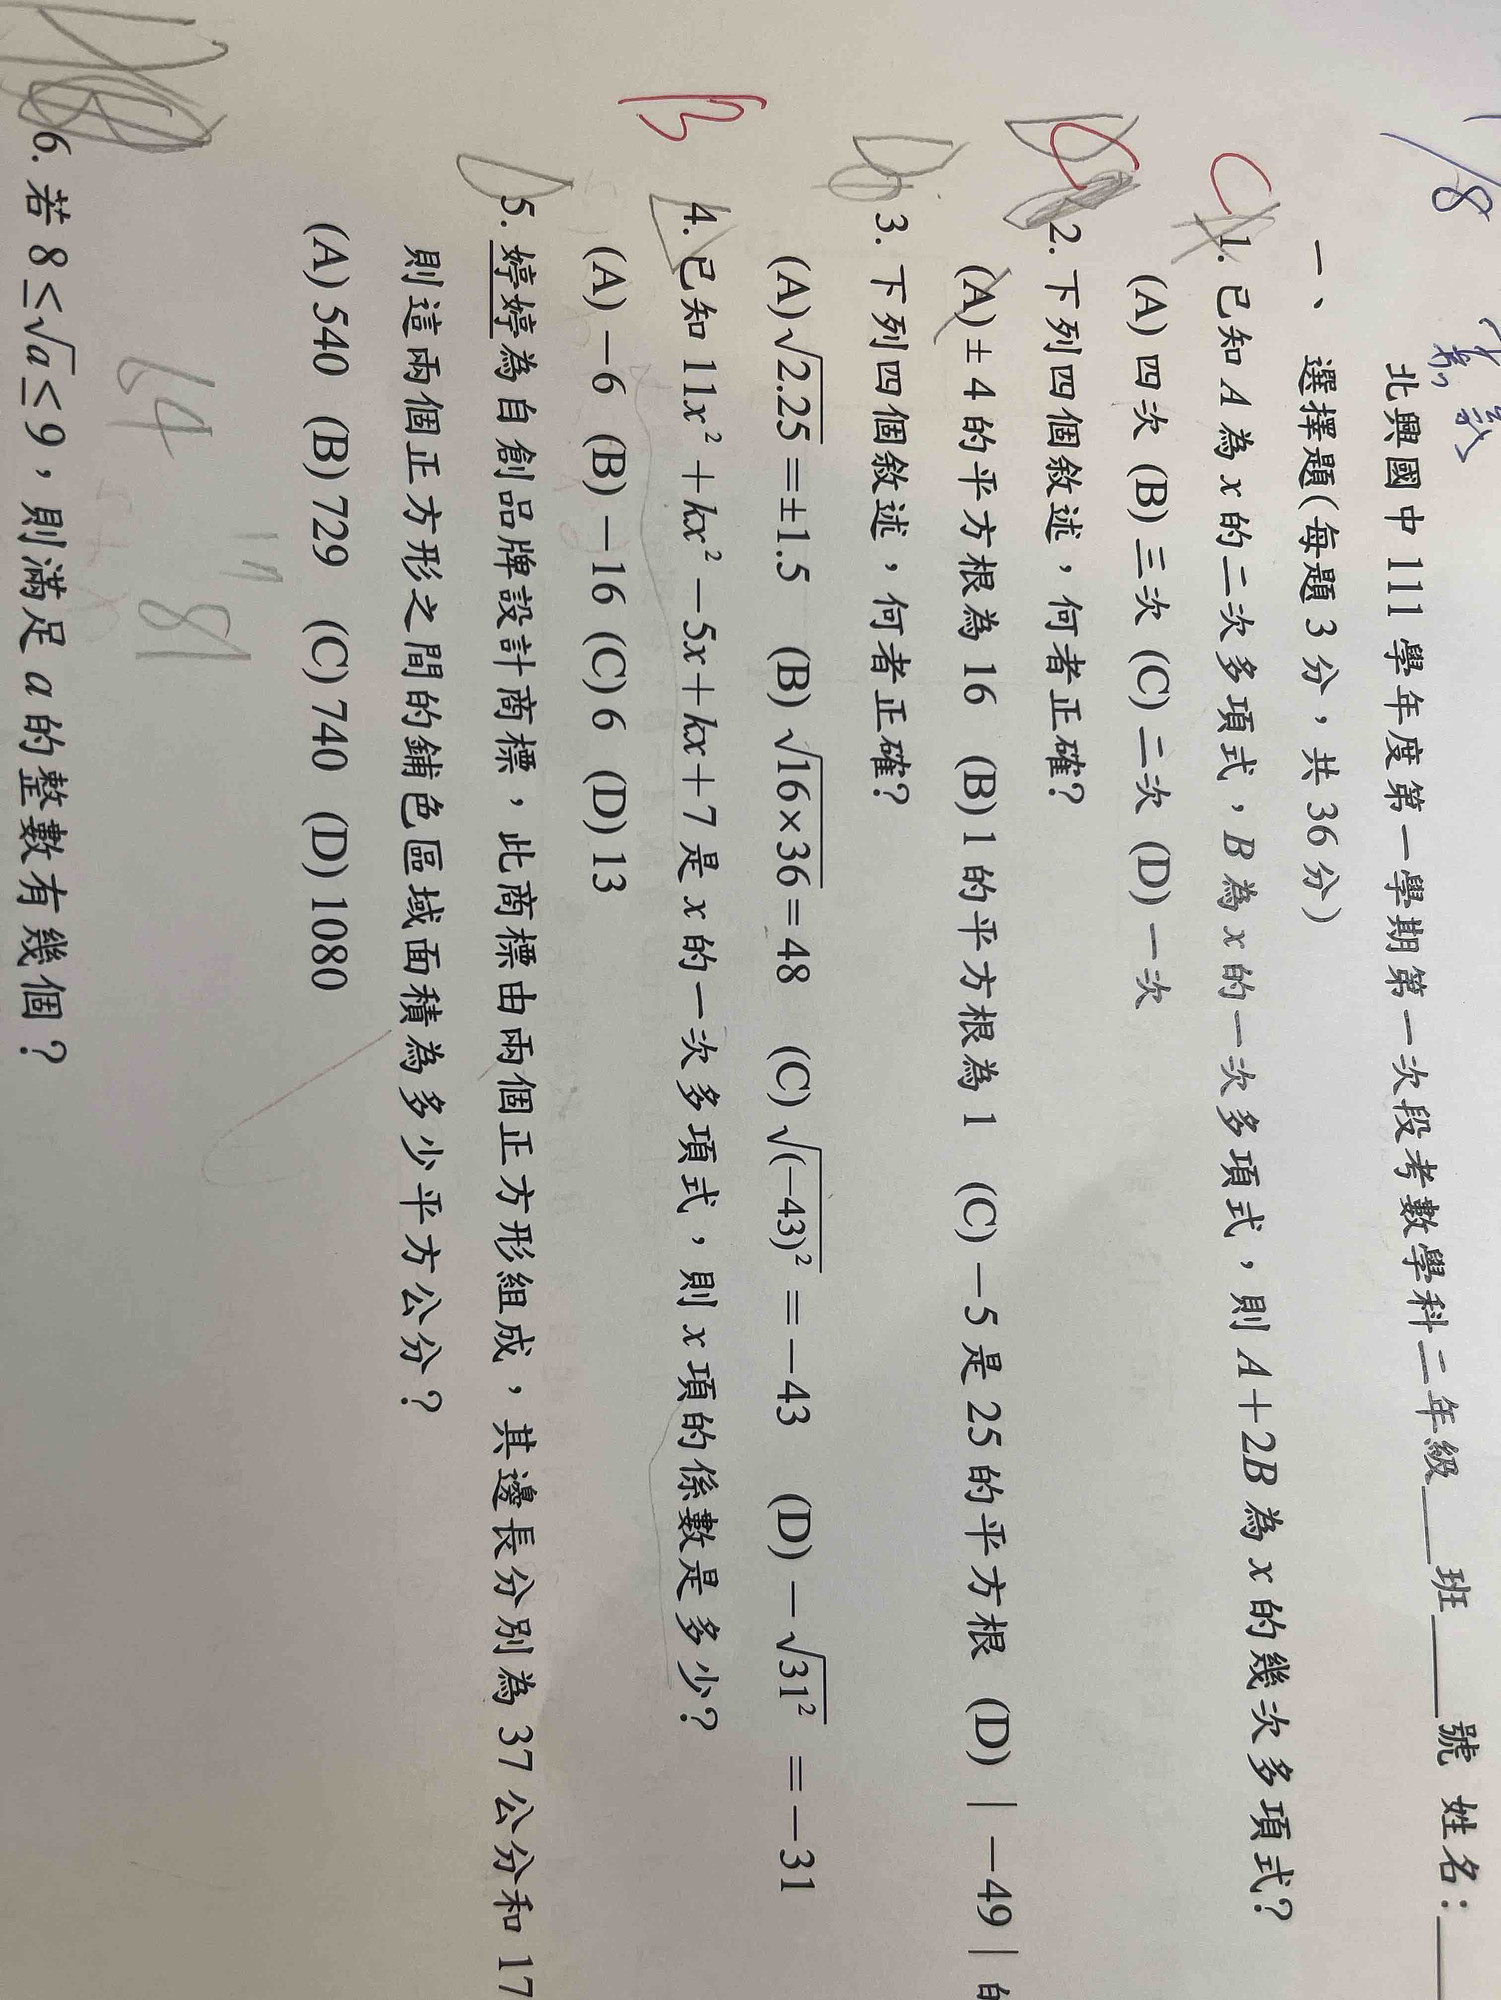 北興國中 111 學年度第一學期第一次段考數學科二年級____班____號 姓名:____
一、選擇題(每題 3 分，共 36 分)
C 1. 已知 A 為 x 的二次多項式，B 為 x 的一次多項式，則 A＋2B 為 x 的幾次多項式?
(A) 四次 (B) 三次 (C) 二次 (D) 一次
C 2. 下列四個敘述，何者正確?
(A) ± 4 的平方根為 16 (B) 1 的平方根為 1 (C) －5 是 25 的平方根 (D) ｜－49｜的
D 3. 下列四個敘述，何者正確?
(A) √2.25 =±1.5 (B) √16×36 = 48 (C) √(−43)² = −43 (D) − √31² = −31
B 4. 已知 11x²＋kx²－5x＋kx＋7 是 x 的一次多項式，則 x 項的係數是多少?
(A) －6 (B) －16 (C) 6 (D) 13
D 5. 婷婷為自創品牌設計商標，此商標由兩個正方形組成，其邊長分別為 37 公分和 17
則這兩個正方形之間的鋪色區域面積為多少平方公分？
(A) 540 (B) 729 (C) 740 (D) 1080
64 81
6. 若 8≤√a≤9，則滿足 a 的整數有幾個？